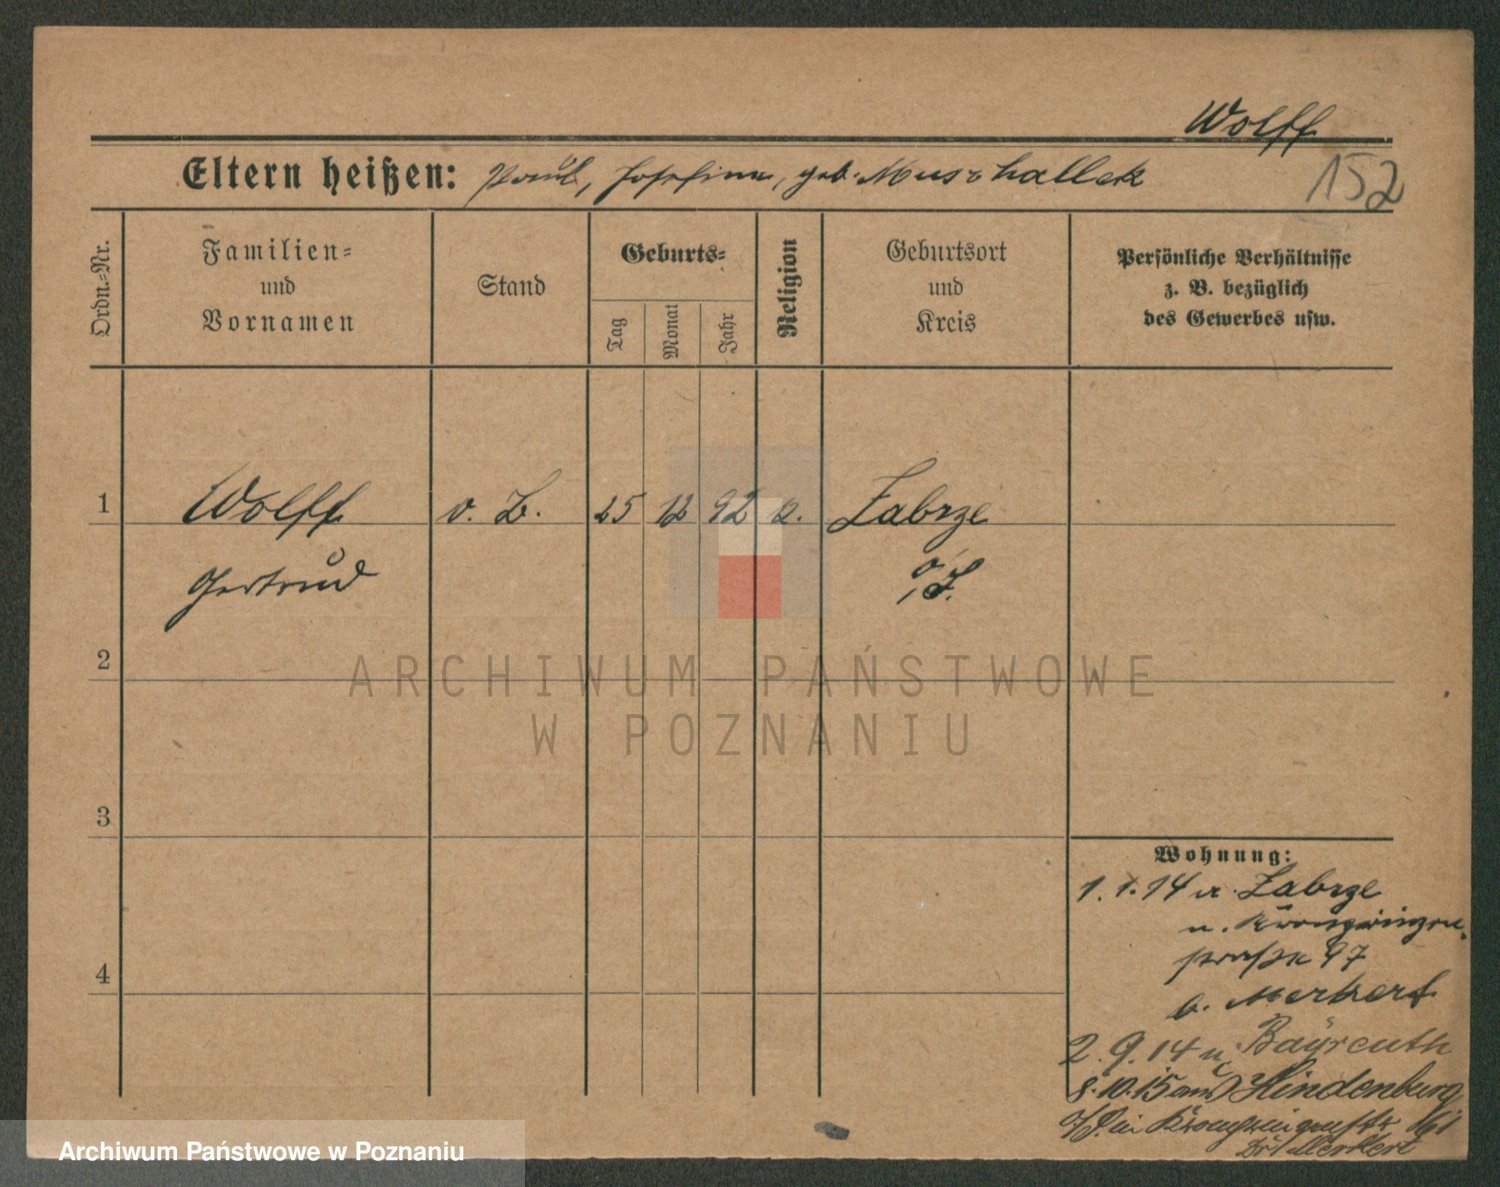 Wolff
Eltern heißen: Paul, Josefine, geb. Muschallek
152
Ordn.-Nr.
Familien-
und
Vornamen
Stand
Geburts-
Tag
Monat
Jahr
Religion
Geburtsort
und
Kreis
Persönliche Verhältnisse
z. B. bezüglich
des Gewerbes usw.
1
Wolff
o. B.
25
12
92
Zabrze
Gertrud
O/S.
2
ARCHIWUM PAŃSTWOWE
W POZNANIU
3
Wohnung:
1.1.14 a. Zabrze
n. Kronprinzen-
straße 97
b. Merkert
4
2.9.14 n. Bayreuth
8.10.15 aus Hindenburg
O/S. in Kronprinzenstr.
Dr. Merkert
Archiwum Państwowe w Poznaniu